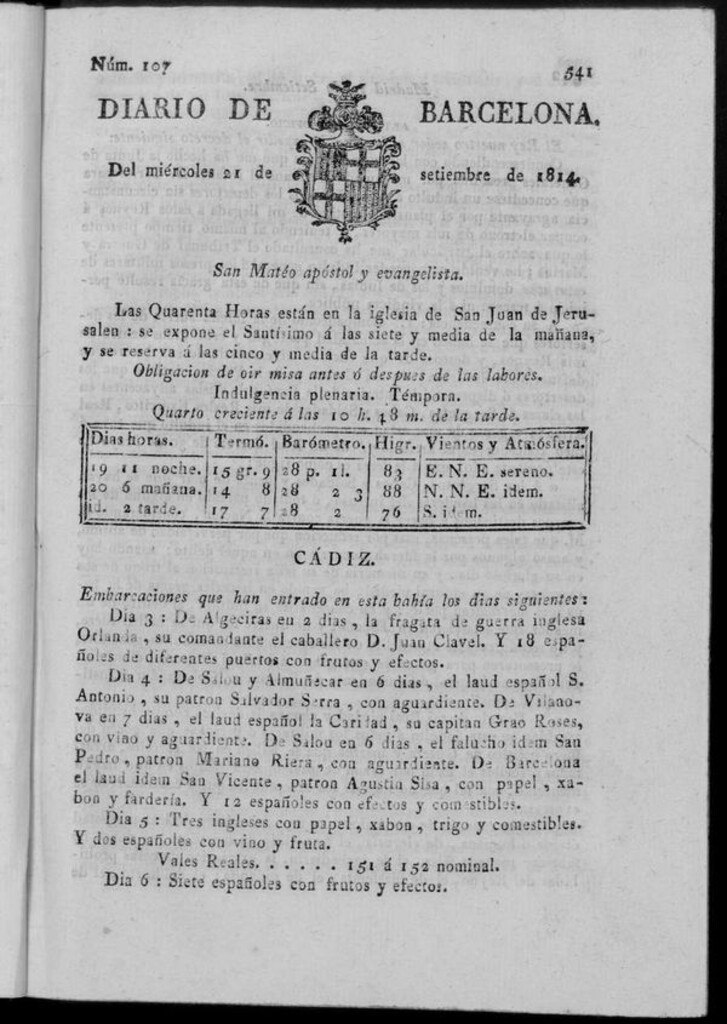 Núm. 107
541
DIARIO DE BARCELONA.
Del miércoles 21 de setiembre de 1814.
San Matéo apóstol y evangelista.
Las Quarenta Horas están en la iglesia de San Juan de Jeru-
salen : se expone el Santísimo á las siete y media de la mañana,
y se reserva á las cinco y media de la tarde.
Obligacion de oir misa antes ó despues de las labores.
Indulgencia plenaria. Témpora.
Quarto creciente á las 10 h. 48 m. de la tarde.
Dias horas. Termó. Barómetro. Higr. Vientos y Atmósfera.
19 11 noche. 15 gr. 9 28 p. 1l. 83 E. N. E. sereno.
20 6 mañana. 14 8 28 2 3 88 N. N. E. idem.
id. 2 tarde. 17 7 28 2 76 S. idem.
CÁDIZ.
Embarcaciones que han entrado en esta bahía los dias siguientes:
Dia 3 : De Algeciras en 2 dias, la fragata de guerra inglesa
Orlanda, su comandante el caballero D. Juan Clavel. Y 18 espa-
ñoles de diferentes puertos con frutos y efectos.
Dia 4 : De Salou y Almuñecar en 6 dias, el laud español S.
Antonio, su patron Salvador Serra, con aguardiente. De Vilano-
va en 7 dias, el laud español la Caridad, su capitan Grao Roses,
con vino y aguardiente. De Salou en 6 dias, el falucho idem San
Pedro, patron Mariano Riera, con aguardiente. De Barcelona
el laud idem San Vicente, patron Agustin Sisa, con papel, xa-
bon y fardería. Y 12 españoles con efectos y comestibles.
Dia 5 : Tres ingleses con papel, xabon, trigo y comestibles.
Y dos españoles con vino y fruta.
Vales Reales. . . . . . 151 á 152 nominal.
Dia 6 : Siete españoles con frutos y efectos.